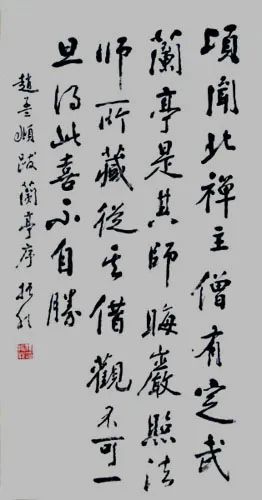 頃聞北禅主僧有定武
蘭亭是其師晦巖照法
師所藏從其借觀不可一
旦得此喜不自勝
趙孟頫跋蘭亭序